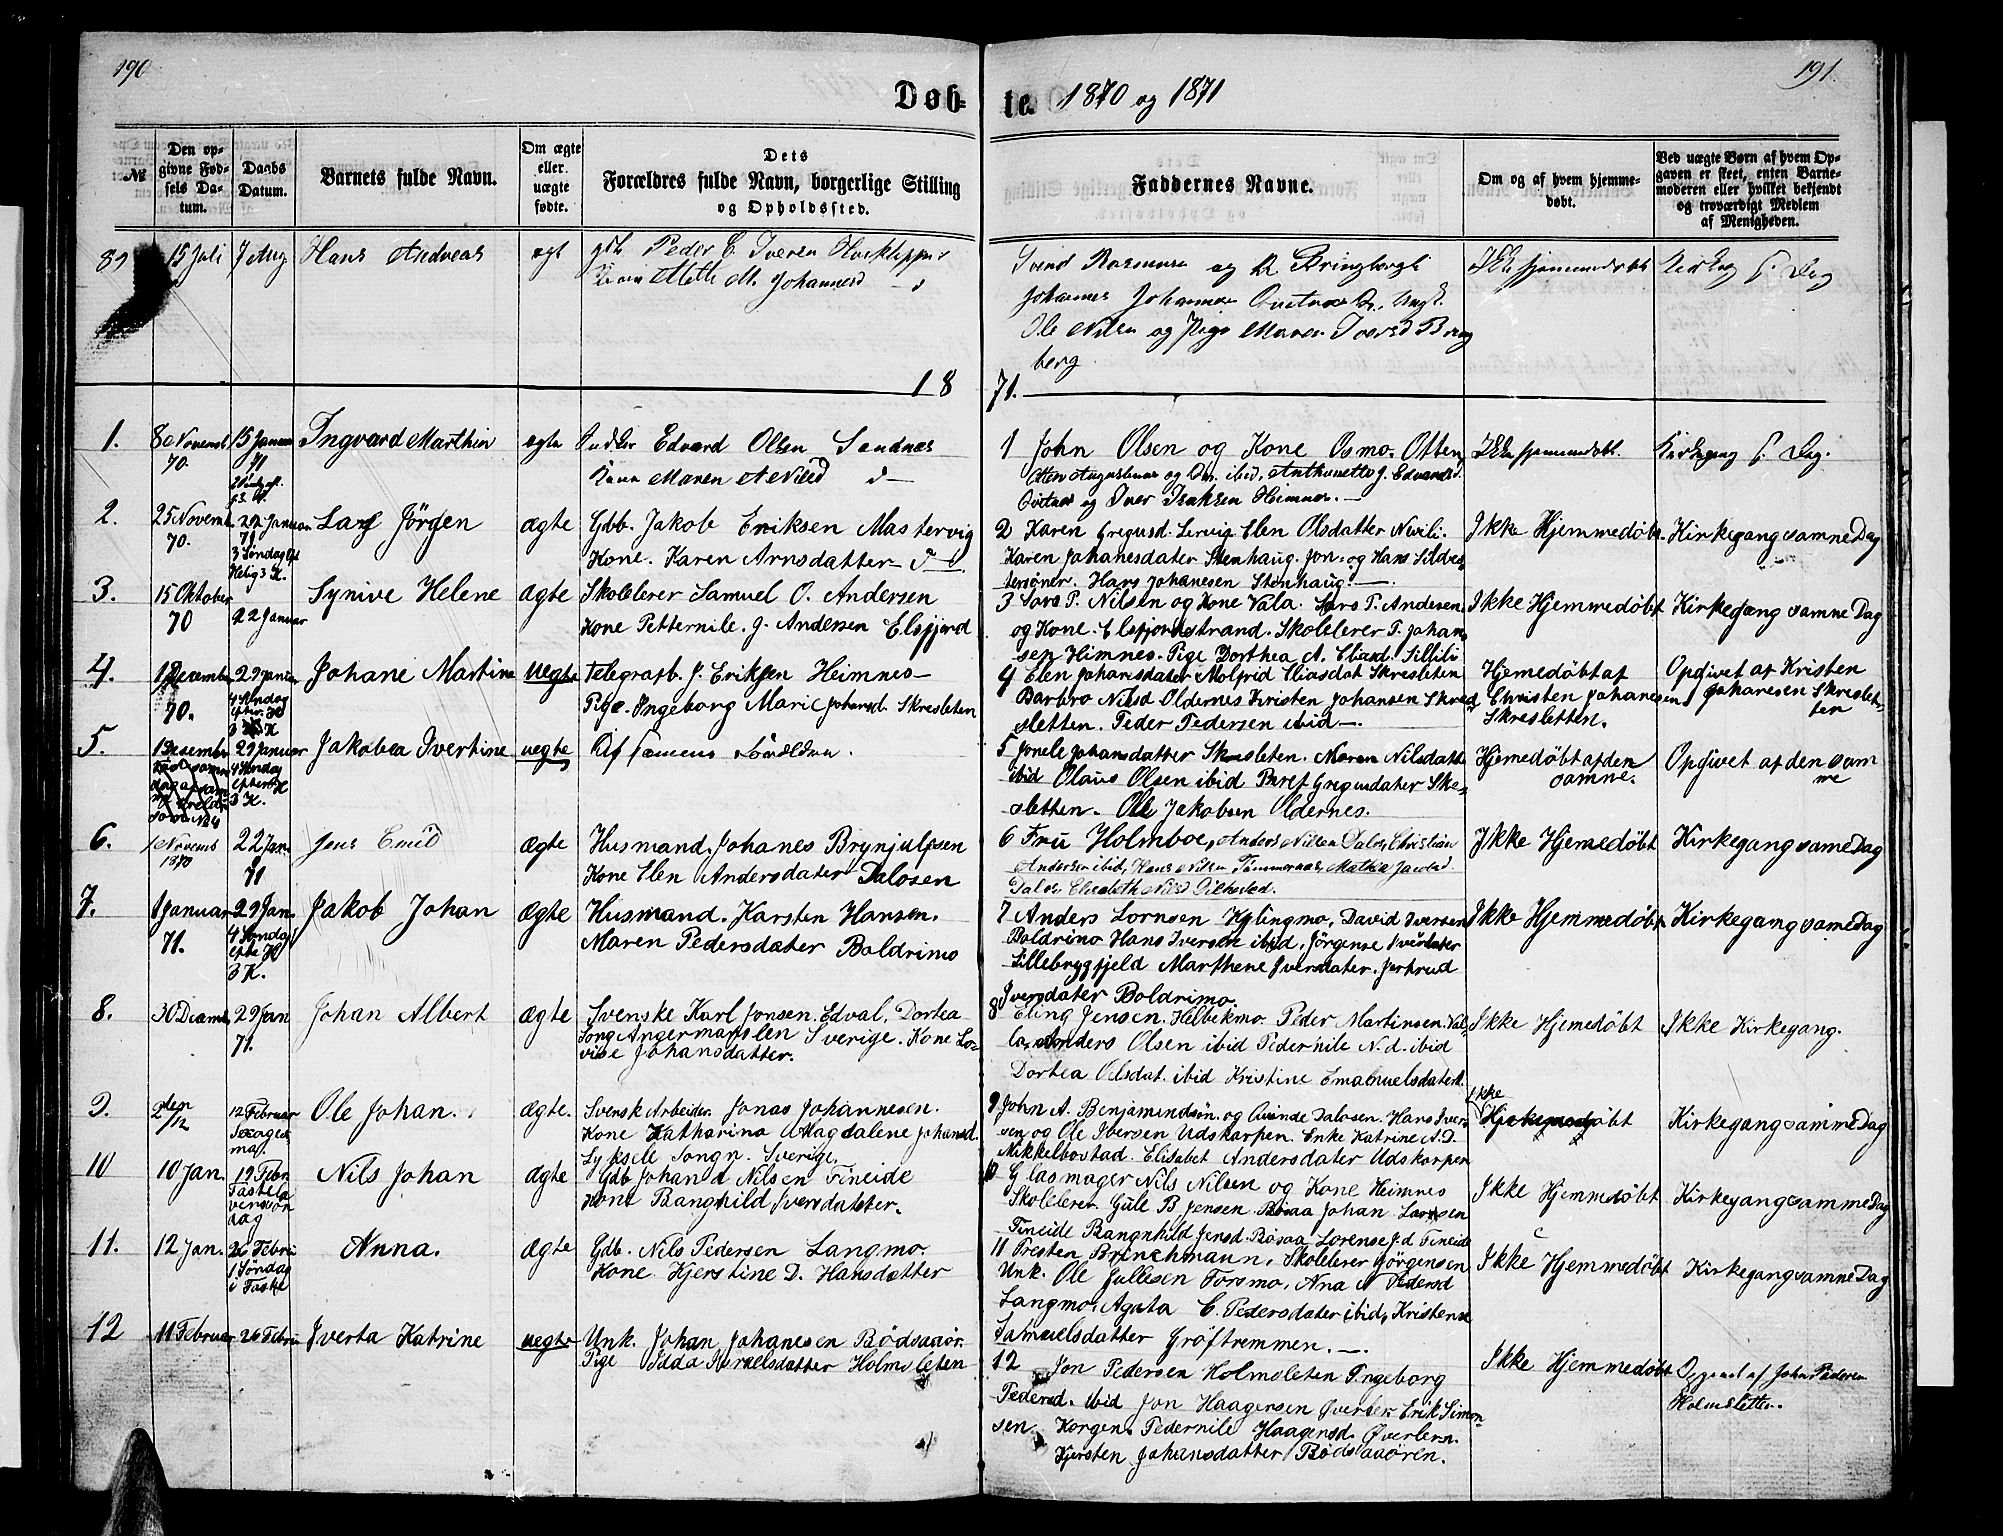 190
191
Døb-
te. 1870 og 1871
№
Den op-
givne Fød-
sels Da-
tum.
Daabs
Datum.
Barnets fulde Navn.
Om ægte
eller
uægte
fødte.
Dets
Forældres fulde Navn, borgerlige Stilling
og Opholdssted.
Faddernes Navne.
Om og af hvem hjemme-
døbt.
Ved uægte Børn af hvem Op-
gaven er skeet, enten Barne-
moderen eller hvilket bekjendt
og troværdigt Medlem
af Menigheden.
89
15 Juli
7 Aug
Hans Andreas
Peder C. Iversen
Kone Meth M. Johannesd
Svend Rasmusen og
Johannes Johannesen
Ole Nilsen og Pige Maren Iversd Bring
berg
18 71.
1.
Novemb
70.
15 Januar
71
Ingvard Marthin
ægte
Edvard Olsen Sandnæs
Kone Maren A Nilsd
1 John Olsen og Kone Osmo. Otten
og Iver Isaksen Heimnes.
Kirkegang s. Dag.
2.
25 Novemb.
70.
22 Januar
71
3 Søndag Eft
Helig 3 K.
Lars Jörgen
ægte
Gdb. Jakob Eriksen Mastervig
Kone. Karen Arnsdatter
2 Karen Gregusd. Lervig Elen Olsdatter
Karen Johanesdater Stenhaug. Jon og Hans Sildes
tersöner. Hans Johanesen Stenhaug.
Ikke Hjemmedøbt.
Kirkegang samme Dag
3.
15 Oktober
70
22 Januar
Synive Helene
ægte
Skolelerer Samuel O. Andersen
Kone Petternile. J. Andersen Elsfjord
3 Lars P. Nilsen og Kone Vala. Lars P. Andesen
og Kone. Elsfjordstrand. Skolelerer P. Johan
sen Himnes. Pige Dorthea A. Eliasd.
Ikke Hjemmedøbt
Kirkegang samme Dag
4.
Desember
70.
29 Januar
4 Søndag
efter. H
3 K
Johane Martine
uegte
Telegrafb. J. Eriksen Heimnes
Pige. Ingeborg Marie Johansd. Skresleten
4 Elen Johansdater Molfrid Eliasdat Skresleten
Barbro Nilsd Oldernes Kristen Johansen Skres
sletten. Peder Pedersen ibid.
Hjemedøbt af
Christen Johanesen
Skresletten.
Opgivet af Kristen
Johanesen Skreslet-
ten
5.
Desember
29 Januar
4 Søndag
efter H
3 K.
Jakobea Ivertine
uegte
Af samme Forældre.
5 Jonele Johansdatter Skresleten. Maren Nilsdatt
ibid Olaus Olsen ibid Beret Gregersdater Skre-
sletten. Ole Jakobsen Oldernes.
Hjemedøbt af den
samme.
Opgivet af den sam
me
6.
1 Novemb
1870
22 Jan.
71
Jens Emil
ægte
Husmand. Johanes Brynjulfsen
Kone Elen Andersdater Dalosen
6 Fru Holmboe, Anders Nilsen Dalos, Christian
Andersen ibid, Hans Nilsen Tömmeraas, Mathea
Ikke Hjemedøbt
Kirkegang same Dag
7.
1 Januar
71.
29 Jan.
4 Søndag
efte H
3 K.
Jakob Johan
ægte
Husmand. Karsten Hansen.
Maren Pedersdater Boldrimo
7 Anders Lornsen Kylingmo, David Iversen
Boldrimo Hans Iversen ibid, Jörgense Iversdater
Lillebrygfjeld Marthene Iversdater. Jertrud
Iversdater Boldrimo.
Ikke Hjemmedøbt
Kirkegang same Dag
8.
30 Dcemb
29 Jan
71.
Johan Albert
ægte
Svenske Karl Jonsen. Edval, Dortea
Song Angermanslen Sverige. Kone Lo-
vise Johansdatter.
8 Eling Jensen. Helbekmo. Peder Martinsen. Val-
la, Anders Olsen ibid Pedernile N. d. ibid
Dortea Olsdat. ibid Kristine Emanuelsdater
Ikke Hjemedøbt
Ikke Kirkegang.
9.
2den/12
12 Februar
Sexages
ma.
Ole Johan.
ægte.
Svensk Arbeider Jonas Johannesen.
Kone Katharina Magdalene Johansd.
Lyksele Songn. Sverige.
9 John A. Benjaminsön. og Qvinde Dalosen. Hans Iver-
sen og Ole Ibersen Udskarpen. Enke Katrine A. D.
Mikkelbostad. Elisabet Andersdater Udskarpen
Ikke
Hjemmedøbt
Kirkegang samme Dag
10
10 Jan.
19 Febr
Fastela
venssön
dag
Nils Johan
ægte
Gdb Johan d Nilsen Fineide
Kone Ragnhild Iversdatter.
10 Glasmager Nils Nilsen og Kone Heimnes
Skolelerer. Gule B Jensen Bösaa Johan Larssen
Fineide Rangnhild Jensd. Bösaa Lorense J.d Fineide
Ikke Hjemmedøbt
Kirkegang samme Dag
11.
12 Jan.
26 Febru
1 Søndag
i Faste
Anna.
ægte
Gdb. Nils Pedersen Langmo.
Kone Kjerstine D. Hansdatter
11 Presten Brinchmann, Skolelerer Görgensen
Unk. Ole Jullesen Forsmo, Ana N Pedersd
Langmo, Agata C. Pedersdater ibid, Kristense
Samuelsdatter Gröftremmen.
Ikke Hjemmedøbt
Kirkegang samme Dag
12
11 Februar
26 Febru
Iverta Katrine
uegte
Unk. Johan Johanesen Bödsaaör.
Pige Idda Israelsdatter Holmsleten
12 Jon Pedersen Holmsleten Ingeborg
Pedersd. ibid Jon Haagensen Øverlers Erik Simon-
sen Korgen. Pedernile Haagensd. Øverleren.
Kjersten Johansdatter Bödsaaören.
Ikke Hjemmedøbt
Opgivet af John Pedersen
Holmsletten.